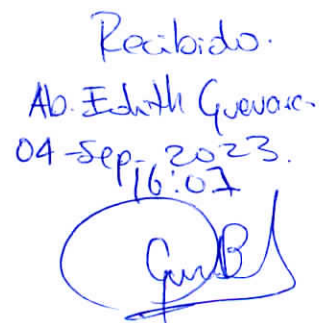 Recibido.
Ab. Edith Guevara.
04-Sep-2023.
16:07